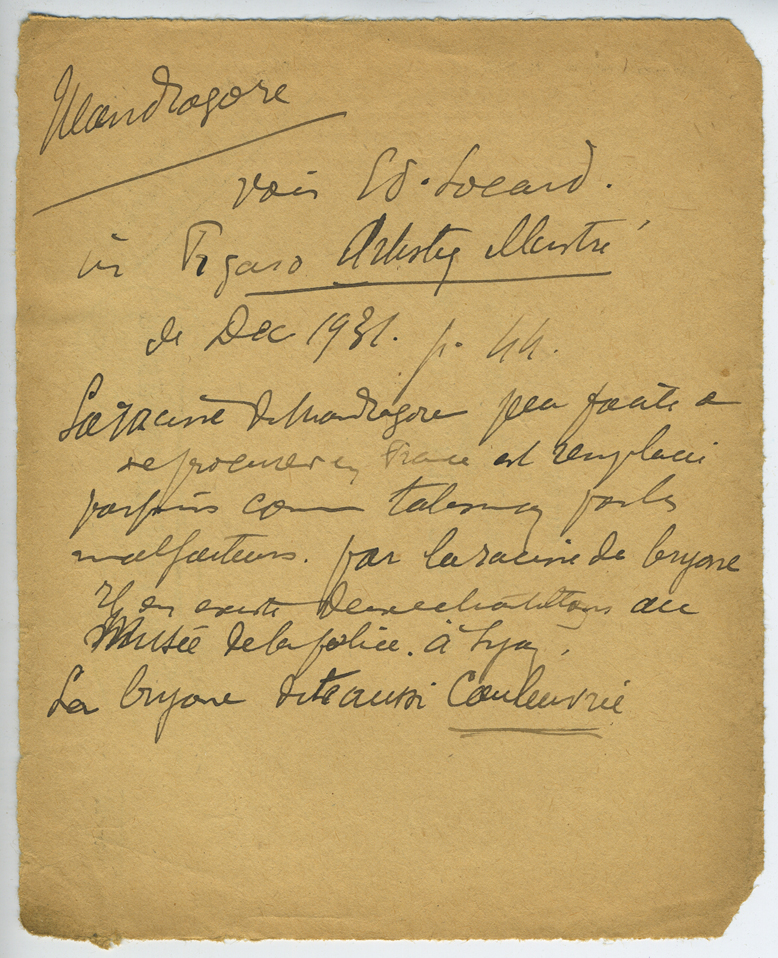 Mandragore
voir Ed. Locard.
in Figaro Artistiq illustré
de Dec 1931. p. 44.
La racine de Mandragore peu facile a
se procurer en France est remplacée
parfois comme talisman par les
malfaiteurs. par la racine de bryone
Il en existe deux échantillons au
Musée de la police. à Lyon.
La bryone dite aussi Couleuvrée